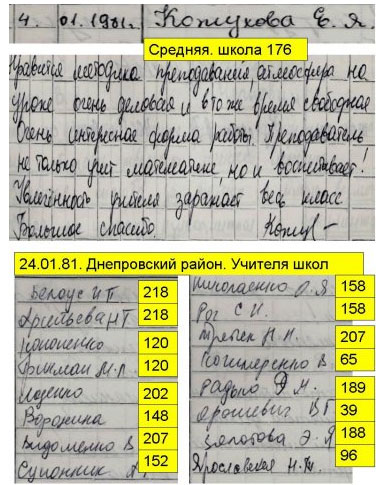 4. 01.1981г. Кожухова Е. Я.
Средняя. школа 176
Нравится методика преподавания, атмосфера на
уроке очень деловая и в то же время свободная
Очень интересная форма работы. Преподаватель
не только учит математике, но и воспитывает!
Увлечённость учителя заражает весь класс
Большое спасибо
24.01.81. Днепровский район. Учителя школ
Белоус И П 218
Арсеньева Н Т 218
Кононенко 120
120
202
Воронина 148
В 207
Супонник 152
Николаенко О. Я 158
Рог С И. 158
Н. Н. 207
В 65
Радько Э М. 189
Ярошевич В Г 39
Золотова Э. Я 188
Ярославская Н. 96